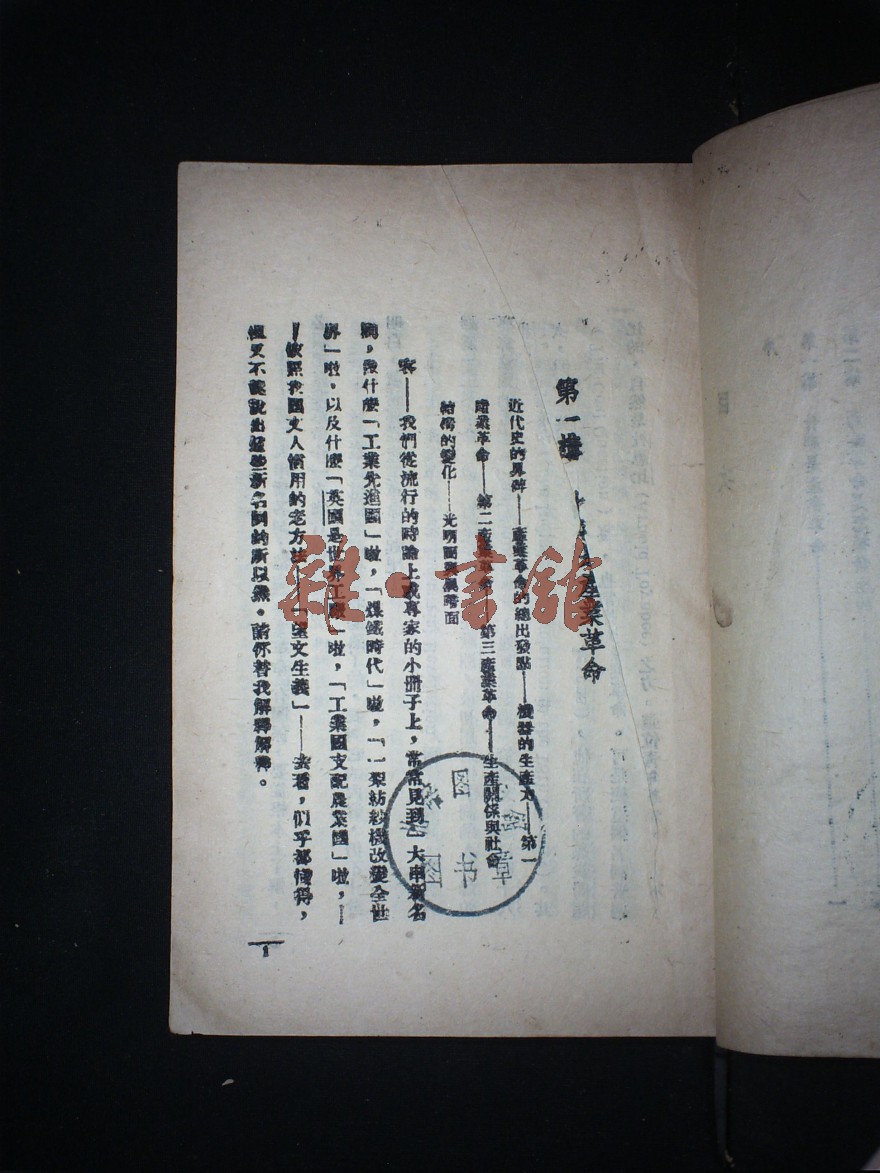 第一講 什麼是產業革命
近代史的界碑——產業革命的總出發點——機器的生產力——第一
產業革命——第二產業革命——第三產業革命——生產關係與社會
結構的變化——光明面與黑暗面
客——我們從流行的時論上或專家的小冊子上，常常見到一大串新名
詞，像什麼「工業先進國」啦，「煤鐵時代」啦，「一架紡紗機改變全世
界」啦，以及什麼「英國是世界工廠」啦，「工業國支配農業國」啦，——
——依照我國文人慣用的老方法——「望文生義」——去看，似乎都懂得，
但又不能說出這些新名詞的所以然。請你替我解釋解釋。
1
雜·書館
图
图书章
目次